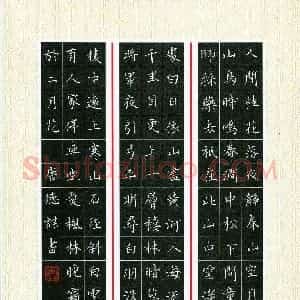 人閒桂花落夜靜春山空
山鳥時鳴春澗中松下問童
師採藥去祇在此山空
處白日依山盡黃河入海流
千里目更上一層樓林暗草
將軍夜引弓平明尋白羽沒
棱中遠上寒山石徑斜白雲
有人家停車坐愛楓林晚霜
於二月花
Shufaziliao.com